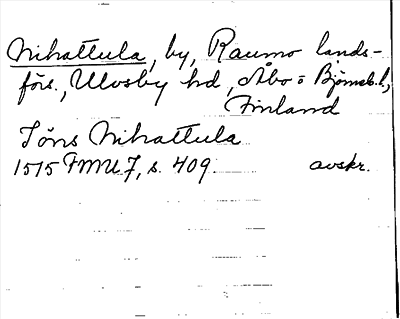 Nihattula, by, Raumo lands-
förs., Ulvsby hd, Åbo o Björneb. l,
Finland
Jöns Nihattula
1515 FMU 7, s. 409. avskr.